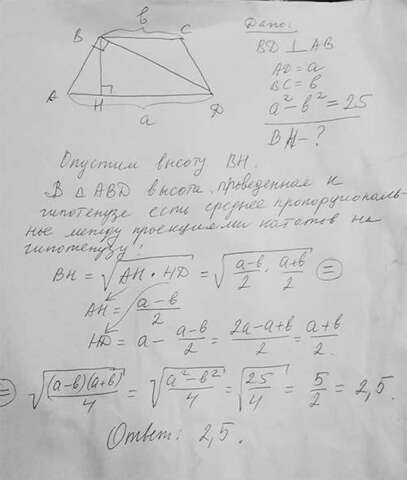 Дано:
b
B
C
BD ⊥ AB
AD = a
BC = b
a² - b² = 25
BH - ?
A
H
D
a
Опустим высоту BH.
В △ ABD высота, проведенная к
гипотенузе есть среднее пропорциональ-
ное между проекциями катетов на
гипотенузу:
BH = √(AH · HD) = √((a-b)/2 · (a+b)/2) =
AH = (a-b)/2
HD = a - (a-b)/2 = (2a-a+b)/2 = (a+b)/2
= √((a-b)(a+b)/4) = √((a²-b²)/4) = √(25/4) = 5/2 = 2,5.
Ответ: 2,5.